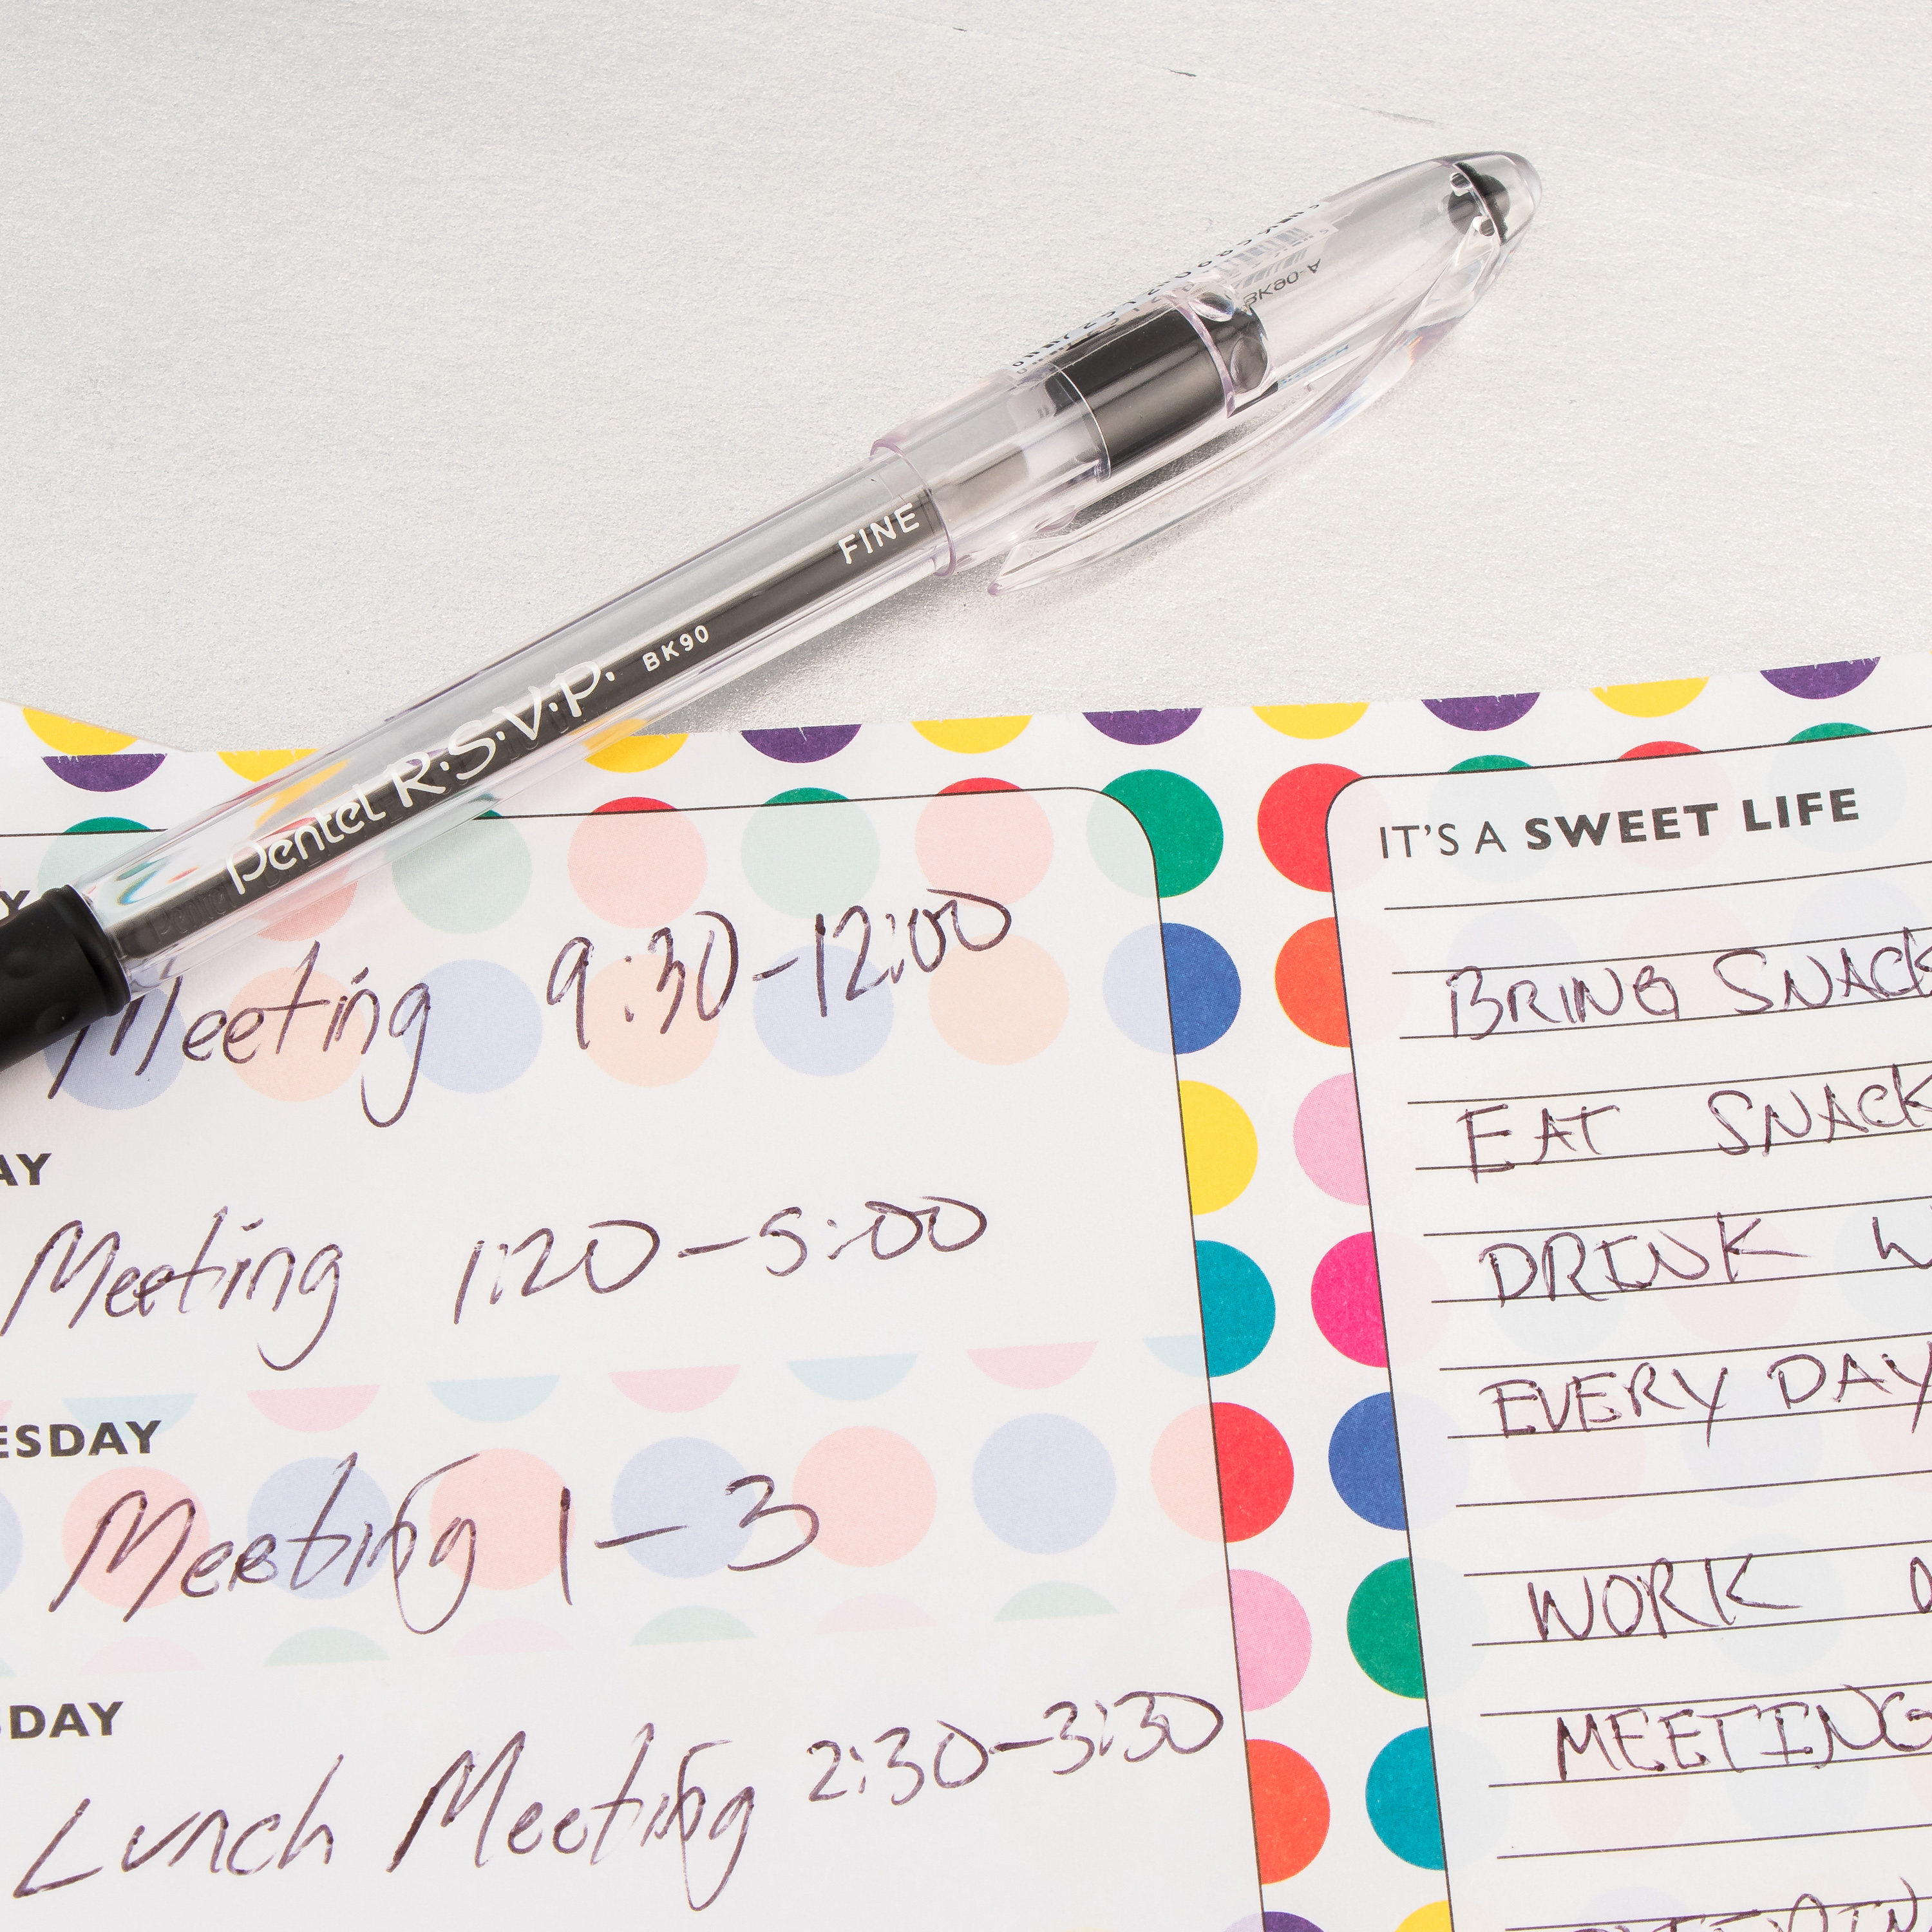 BK90-A
FINE
Pentel R·S·V·P. BK90
Meeting 9:30-12:00
AY
Meeting 1:20-5:00
ESDAY
Meeting 1-3
DAY
Lunch Meeting 2:30-3:30
IT'S A SWEET LIFE
BRING SNACK
EAT SNACK
DRINK W
EVERY DAY
WORK
MEETING